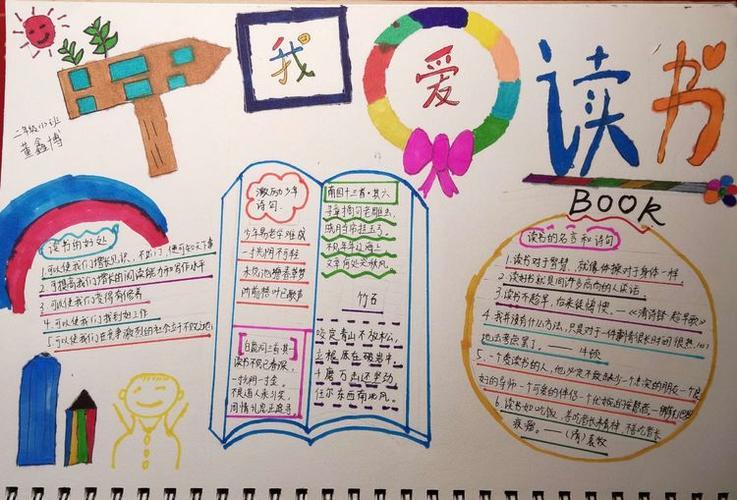 我爱读书
二年级(12)班
董鑫博
BOOK
读书的好处
1.可以使我们增长见识,不出门,便可知天下事
2.可提高我们的阅读能力和写作水平
3.可以使我们变得有修养
4.可以使我们找到好工作
5.可以使我们在竞争激烈的社会立于不败之地
激励少年
诗句
少年易老学难成
一寸光阴不可轻
未觉池塘春草梦
阶前梧叶已秋声
白鹿洞二首·其一
读书不觉已春深
一寸光阴一寸金。
不是道人来引笑,
周情孔思正追寻
南园十三首·其六
寻章摘句老雕虫,
晓月当帘挂玉弓。
不见年年辽海上
文章何处哭秋风。
竹石
咬定青山不放松,
立根原在破岩中。
千磨万击还坚劲
任尔东西南北风。
读书的名言和诗句
1.读书对于智慧,就像体操对于身体一样。
2.读好书就是同许多高尚的人谈话
3.读书不趁早,后来徒悔懊。——《清诗铎·趁早歌》
4.我并没有什么方法,只是对于一件事情很长时间很热心
地去考虑罢了。——牛顿
5.一个爱读书的人,他必定不致缺少一个忠实的朋友一个良
好的导师一个可爱的伴侣一个优婉的安慰者
6.读书如吃饭,善吃者长精神,不善吃者长
痰瘤。——(清)袁枚